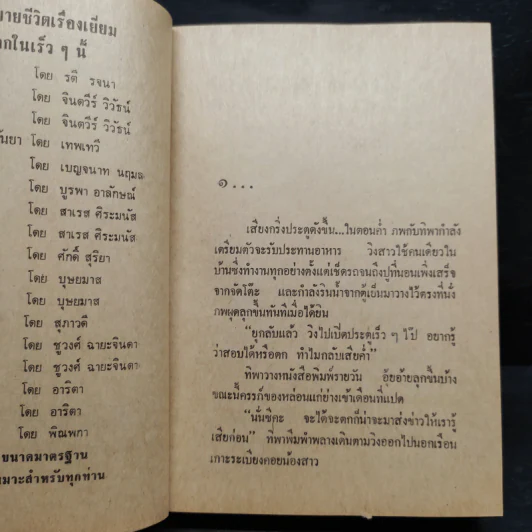 ายชีวิตเรื่องเยี่ยม
กในเร็ว ๆ นี้
โดย รตี รจนา
โดย จินตวีร์ วิวัธน์
โดย จินตวีร์ วิวัธน์
ันยา โดย เทพเทวี
โดย เบญจนาท นฤมล
โดย บูรพา อาลักษณ์
โดย สาเรส ศิระมนัส
โดย สาเรส ศิระมนัส
โดย ศักดิ์ สุริยา
โดย บุษยมาส
โดย บุษยมาส
โดย สุภาวดี
โดย ชูวงศ์ ฉายะจินดา
โดย ชูวงศ์ ฉายะจินดา
โดย อาริตา
โดย อาริตา
โดย พิณพกา
ขนาดมาตรฐาน
หมาะสำหรับทุกท่าน
๑...
เสียงกริ่งประตูดังขึ้น...ในตอนค่ำ ภพกับทิพากำลัง
เตรียมตัวจะรับประทานอาหาร วิงสาวใช้คนเดียวใน
บ้านซึ่งทำงานทุกอย่างตั้งแต่เช็ดรถจนถึงปูที่นอนเพิ่งเสร็จ
จากจัดโต๊ะ และกำลังรินน้ำจากตู้เย็นมาวางไว้ตรงที่นั่ง
ภพผุดลุกขึ้นทันทีเมื่อได้ยิน
"ยุกลับแล้ว วิงไปเปิดประตูเร็ว ๆ ไป๊ อยากรู้
ว่าสอบได้หรือตก ทำไมกลับเสียค่ำ"
ทิพาวางหนังสือพิมพ์รายวัน อุ้ยอ้ายลุกขึ้นบ้าง
ขณะนี้ครรภ์ของหล่อนแก่ย่างเข้าเดือนที่แปด
"นั่นซีคะ จะได้จะตกก็น่าจะมาส่งข่าวให้เรารู้
เสียก่อน" ทิพาพึมพำพลางเดินตามวิงออกไปนอกเรือน
เกาะระเบียงคอยน้องสาว